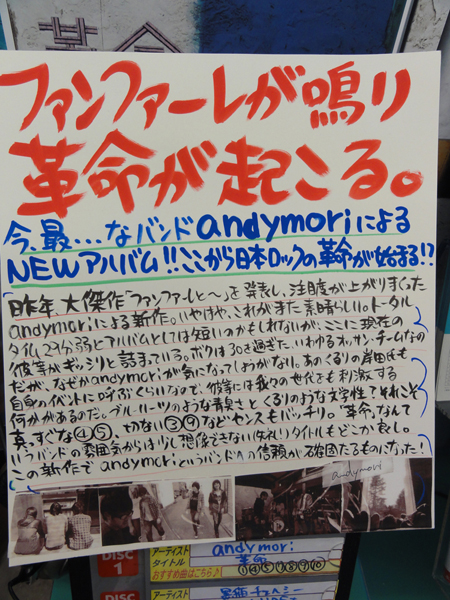 革命
ファンファーレが鳴り
革命が起こる。
今、最…なバンドandymoriによる
NEWアルバム!!ここから日本ロックの革命が始まる!?
昨年、大傑作「ファンファーレと〜」を発表し、注目度が上がりまくった
andymoriによる新作。いやはや、これがまた素晴らしい。トータル
タイム29分弱とアルバムとしては短いのかもしれないが、ここに現在の
彼等がギッシリと詰まっている。ボクは30を過ぎた、いわゆるオッサン・チームなの
だが、なぜかandymoriが気になってしょうがない。あのくるりの岸田氏も
自身のイベントに呼ぶくらいなので、彼等には我々の世代をも刺激する
何かがあるのだ。ブルーハーツのような青臭さとくるりのような文学性?それこそ
真っすぐな④⑤、切ない③⑨などセンスもバッチリ。「革命」なんて
いうバンドの雰囲気からは少し想像できない(失礼)タイトルもどこか良し。
この新作でandymoriというバンドへの信頼が強固たるものになった!
andymori
DISC
1
アーティスト
andymori
タイトル
革命
おすすめ曲はこちら♪
①④⑤⑦⑧⑨⑩
DISC
アーティスト